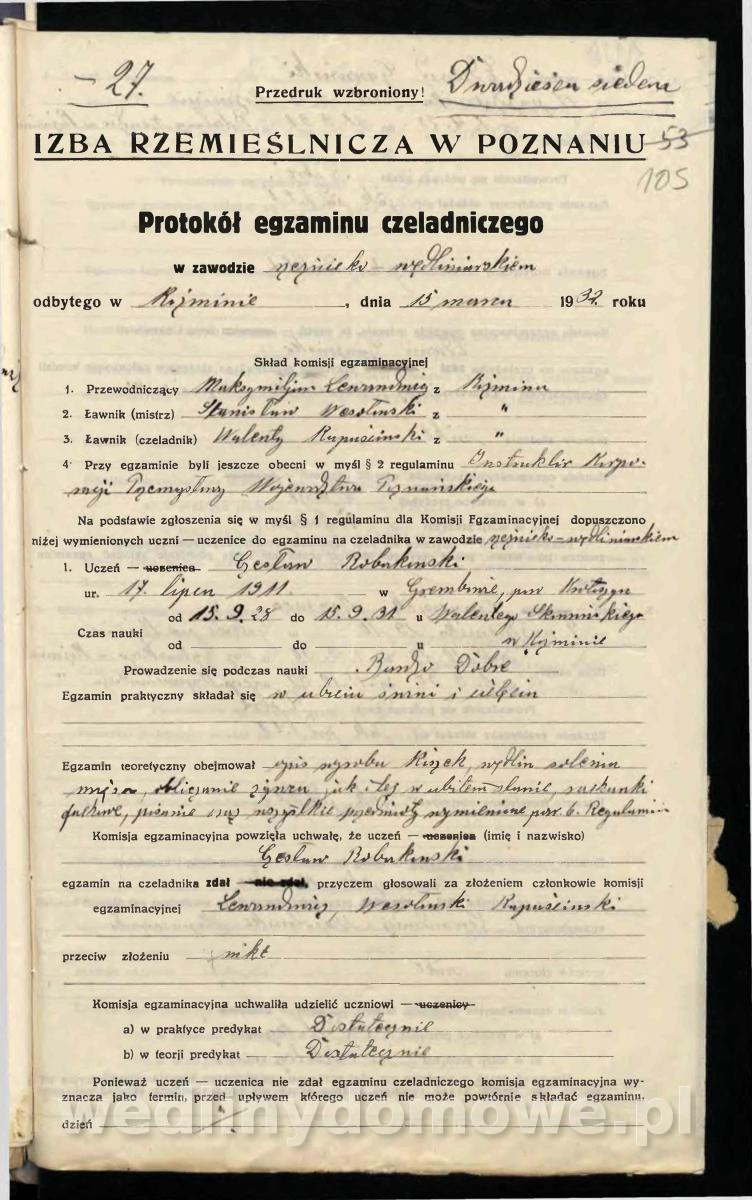 — 27.
Przedruk wzbroniony!
Dwadzieścia siedem
IZBA RZEMIEŚLNICZA W POZNANIU
53
105
Protokół egzaminu czeladniczego
w zawodzie rzeźnicko – wędliniarskiem
odbytego w Koźminie, dnia 15 marca 1932 roku
Skład komisji egzaminacyjnej
1. Przewodniczący Maksymiljan Lewandowicz z Koźmina
2. Ławnik (mistrz) Stanisław Wesołowski z "
3. Ławnik (czeladnik) Walenty Rapuściński z "
4. Przy egzaminie byli jeszcze obecni w myśl § 2 regulaminu Instruktor Korpo-
racji Przemysłowej Województwa Poznańskiego
Na podstawie zgłoszenia się w myśl § 1 regulaminu dla Komisji Fgzaminacyjnej dopuszczono
niżej wymienionych uczni — uczenice do egzaminu na czeladnika w zawodzie rzeźnicko – wędliniarskiem
1. Uczeń — uczenica Czesław Robakowski
ur. 17 lipca 1911 w pow Krotoszyn
od 15.9.28 do 15.9.31 u Walentego
Czas nauki
od do u w Koźminie
Prowadzenie się podczas nauki Bardzo Dobre
Egzamin praktyczny składał się w ubiciu świni i
Egzamin teoretyczny obejmował opis wyrobu kiszek, wędlin solenia
mięsa, obliczanie żywca jak i też w ubitem stanie, rachunki
fachowe, pisanie oraz wszystkie przedmioty wymienione par. 6. Regulaminu
Komisja egzaminacyjna powzięła uchwałę, że uczeń — uczenica (imię i nazwisko)
Czesław Robakowski
egzamin na czeladnika zdał — nie zdał, przyczem głosowali za złożeniem członkowie komisji
egzaminacyjnej Lewandowicz, Wesołowski Rapuściński
przeciw złożeniu nikt
Komisja egzaminacyjna uchwaliła udzielić uczniowi — uczenicy
a) w praktyce predykat Dostatecznie
b) w teorji predykat Dostatecznie
Ponieważ uczeń — uczenica nie zdał egzaminu czeladniczego komisja egzaminacyjna wy-
znacza jako termin, przed upływem którego uczeń nie może powtórnie składać egzaminu,
dzień
wedlinydomowe.pl